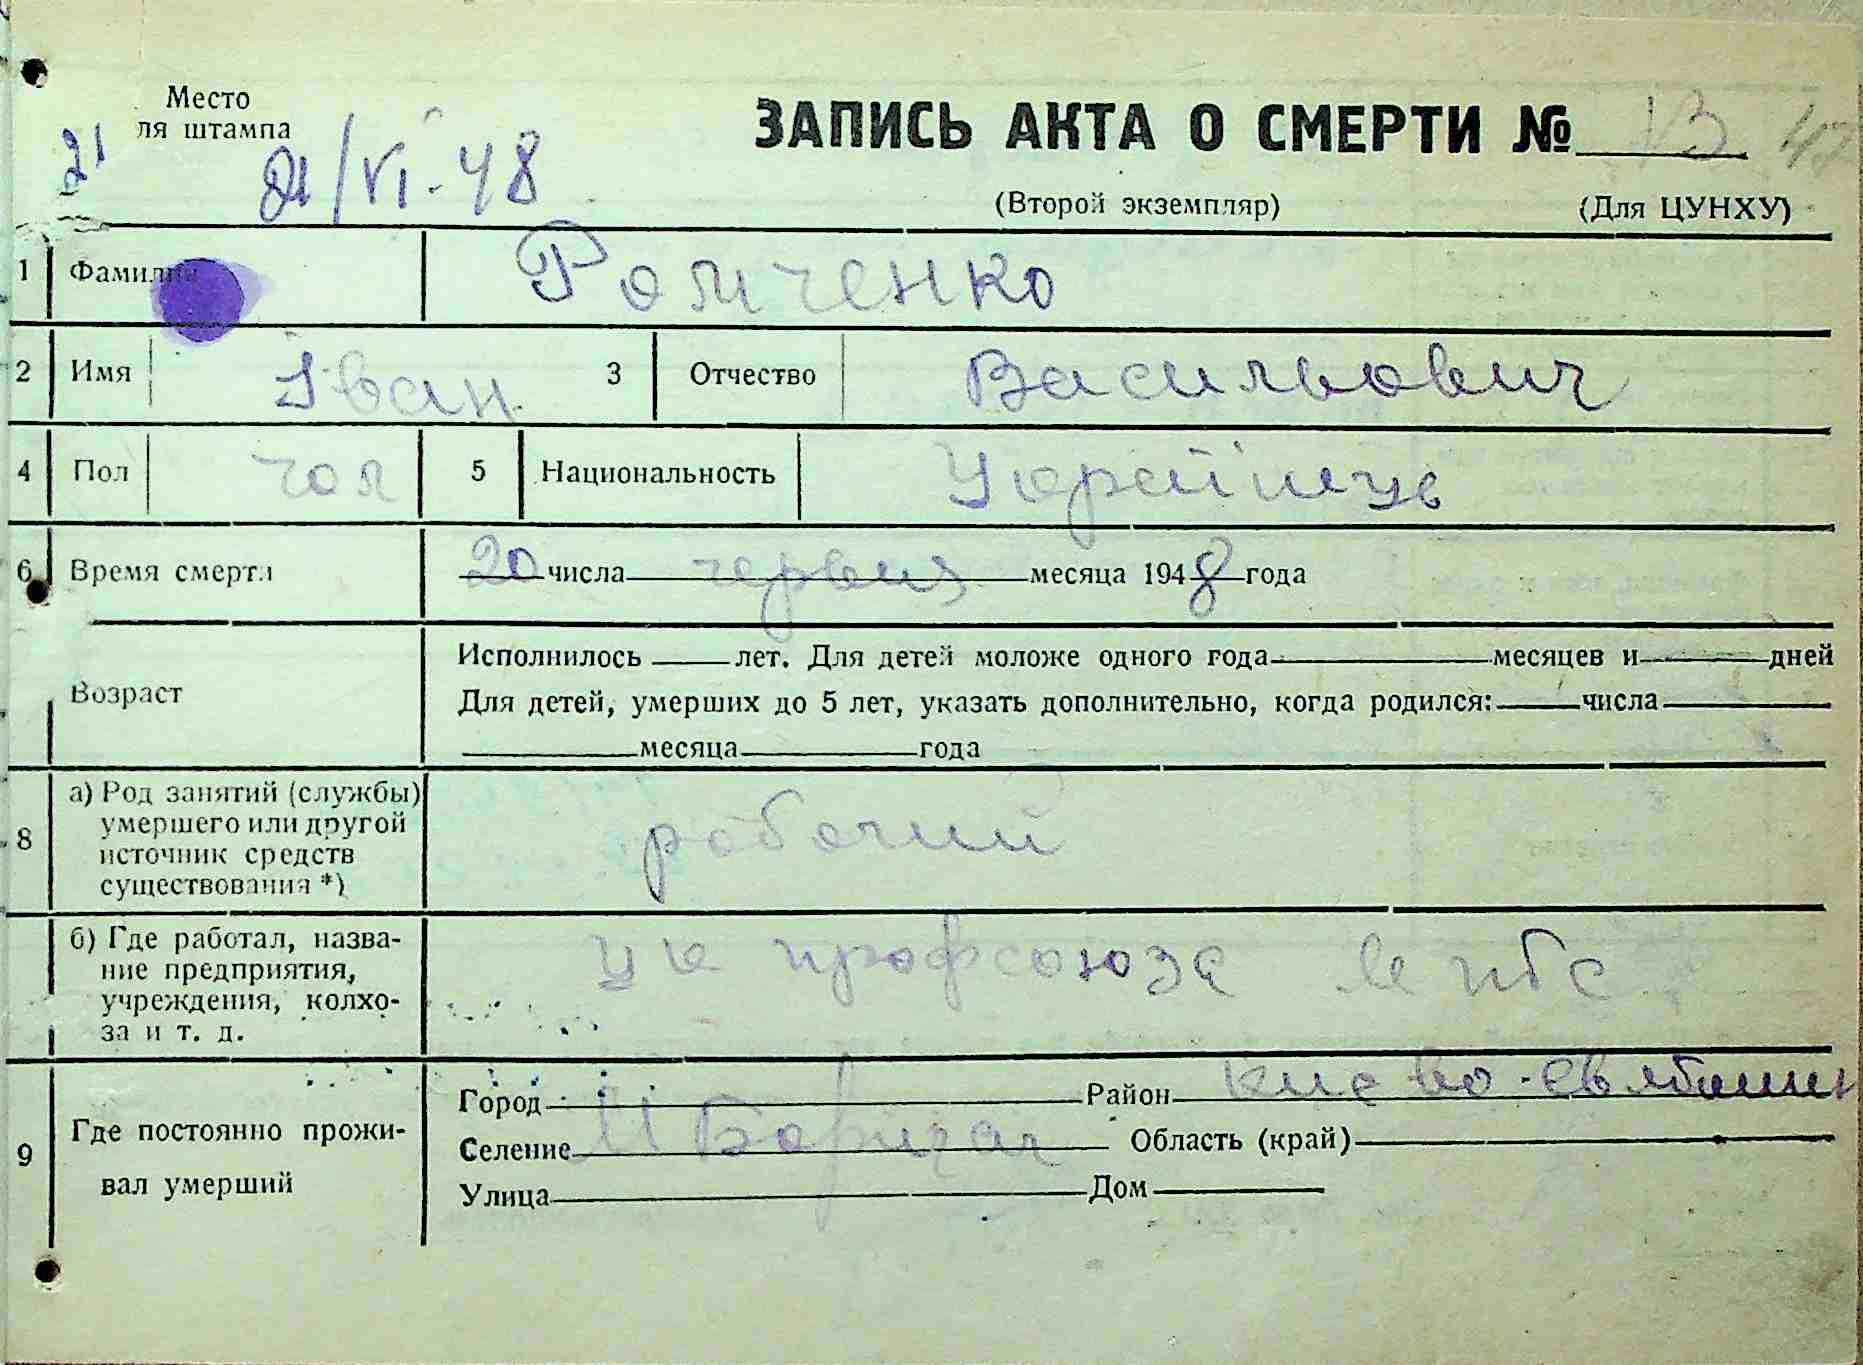 Место
ля штампа
21
21/VI-48
ЗАПИСЬ АКТА О СМЕРТИ № 13
(Второй экземпляр) (Для ЦУНХУ)
1 Фамилия Ромченко
2 Имя Іван 3 Отчество Васильович
4 Пол чол 5 Национальность Українць
6 Время смерти 20 числа червня месяца 1948 года
Возраст
Исполнилось лет. Для детей моложе одного года месяцев и дней
Для детей, умерших до 5 лет, указать дополнительно, когда родился: числа
месяца года
8 а) Род занятий (службы)
умершего или другой
источник средств
существования *)
робочий
б) Где работал, назва-
ние предприятия,
учреждения, колхо-
за и т. д.
цк профсоюза
9 Где постоянно прожи-
вал умерший
Город Район Києво-Святошин
Селение М Борщаг Область (край)
Улица Дом